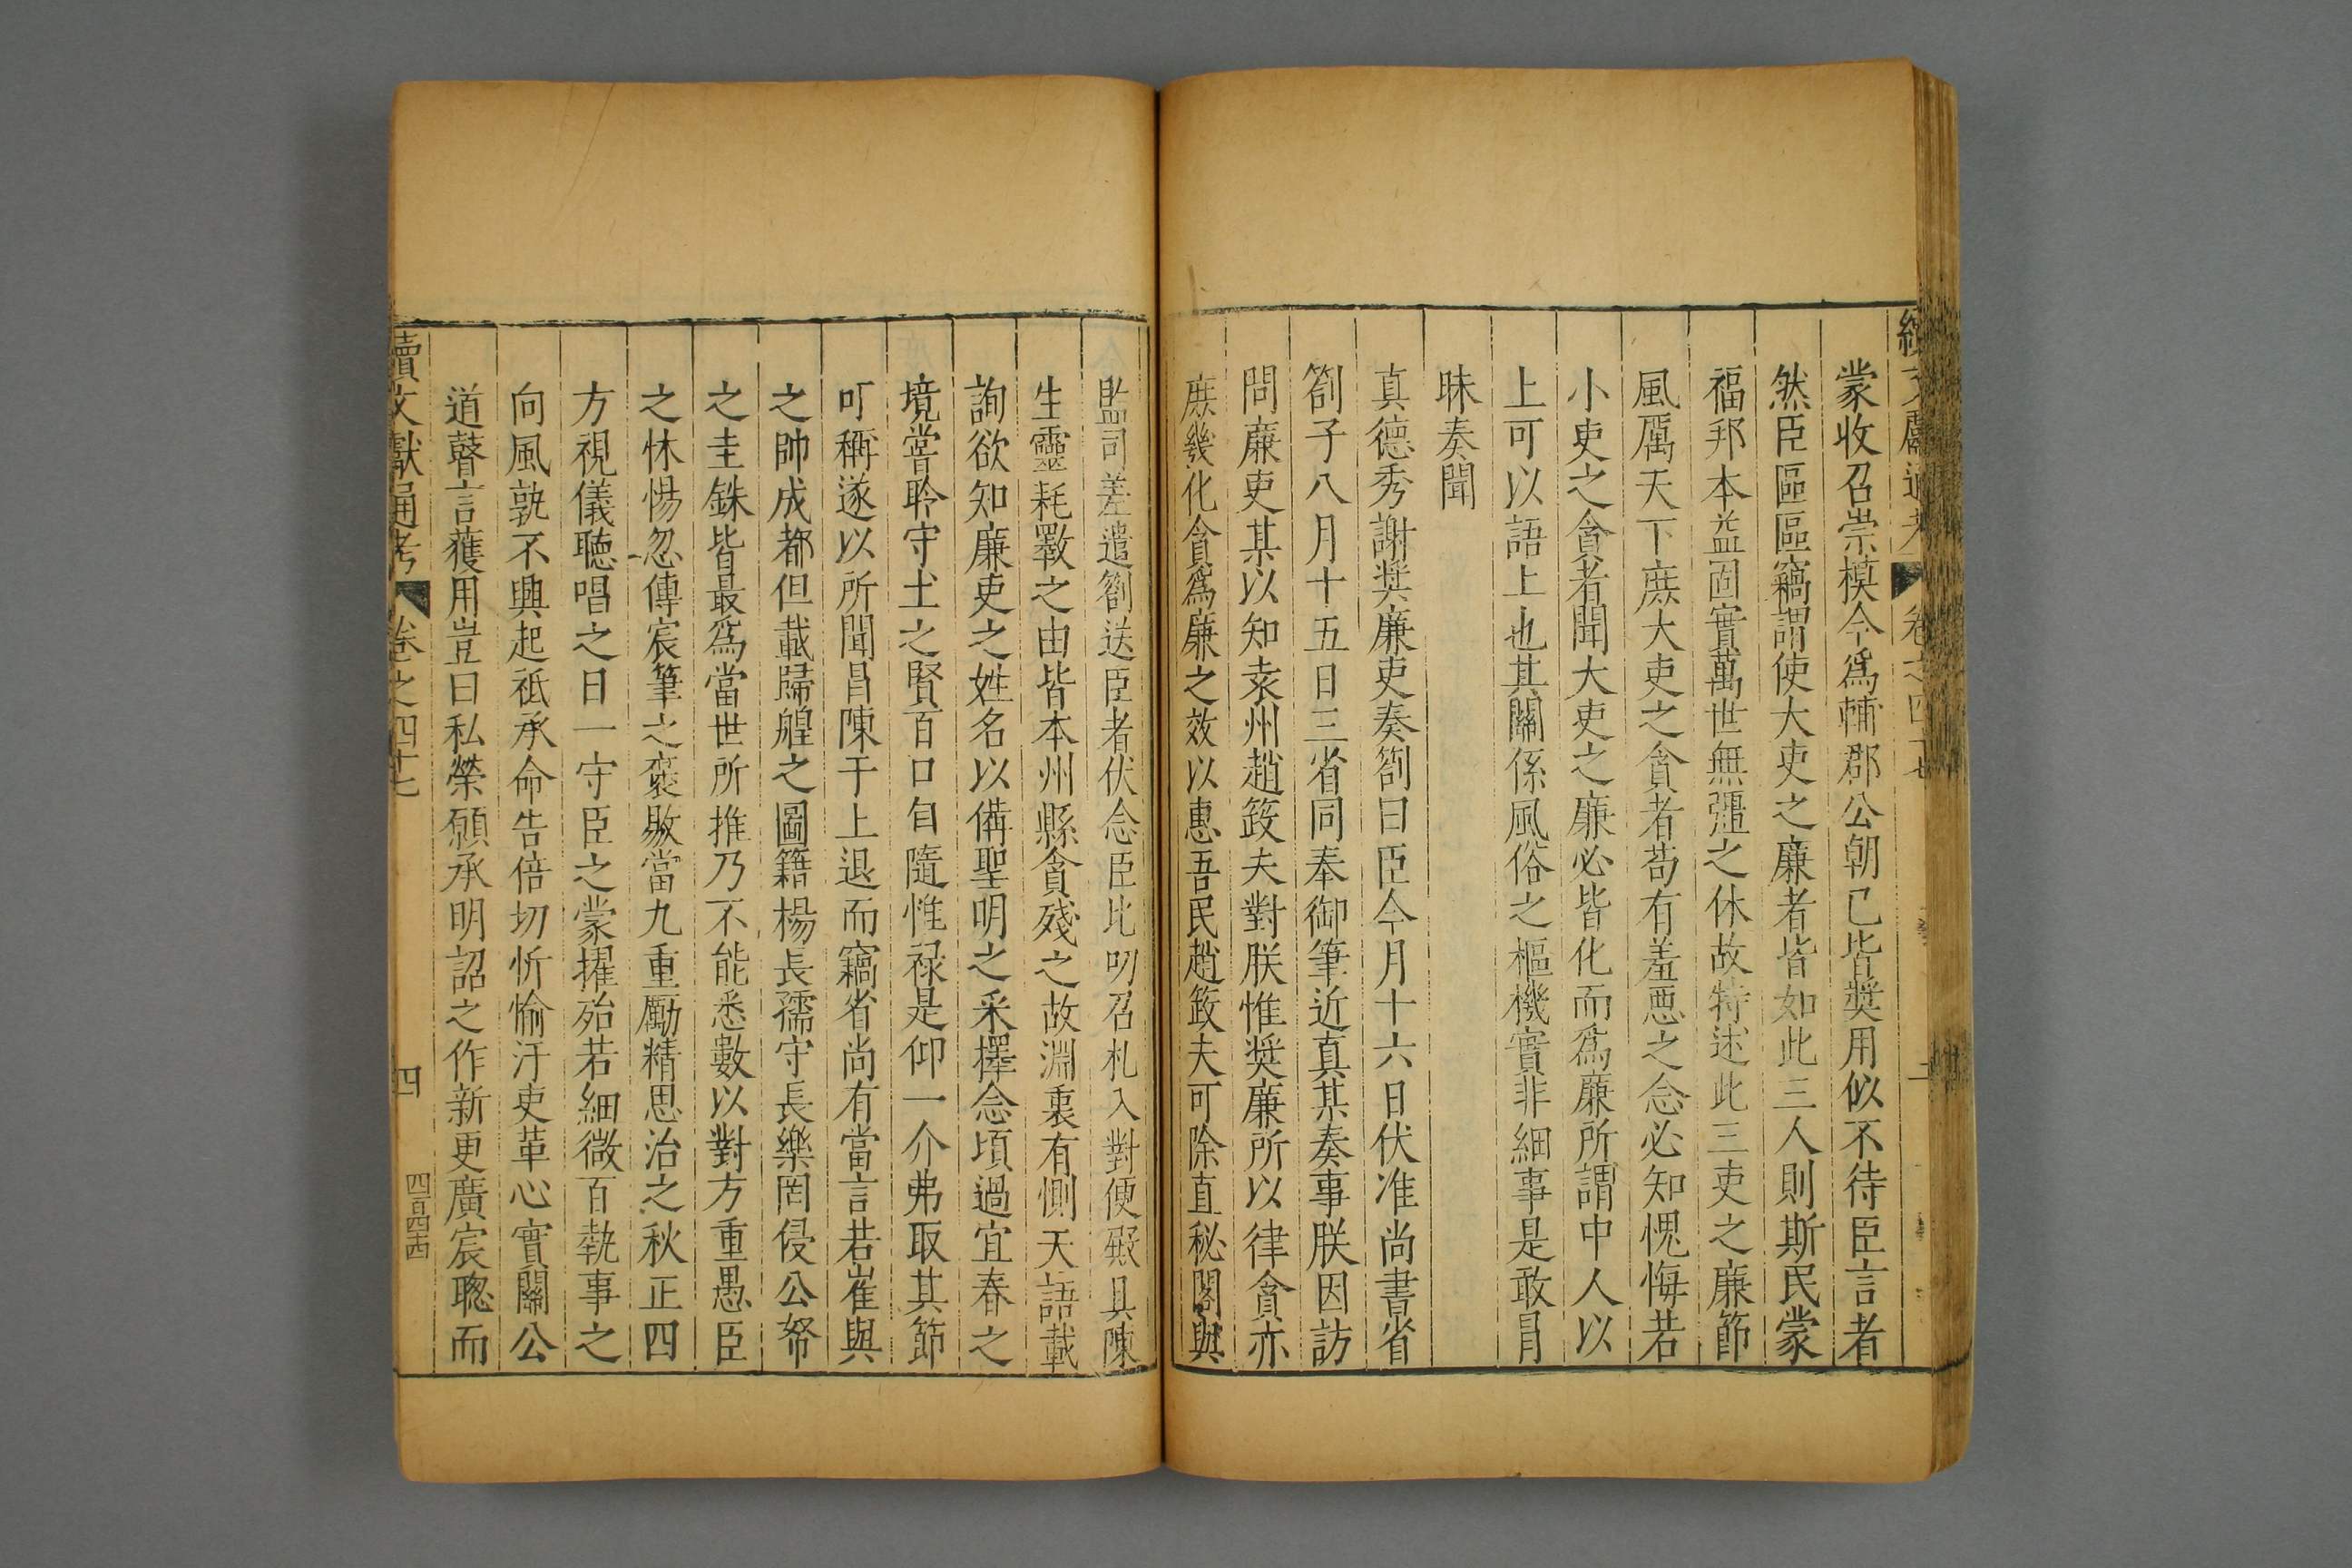 續文獻通考 卷之四十七
蒙收召崇模今爲輔郡公朝已皆奬用似不待臣言者
然臣區區竊謂使大吏之廉者皆如此三人則斯民蒙
福邦本益固實萬世無彊之休故特述此三吏之廉節
風厲天下庶大吏之貪者苟有羞惡之念必知愧悔若
小吏之貪者聞大吏之廉必皆化而爲廉所謂中人以
上可以語上也其關係風俗之樞機實非細事是敢冒
昧奏聞
真德秀謝奬廉吏奏劄曰臣今月十六日伏准尚書省
劄子八月十五日三省同奉御筆近真某奏事朕因訪
問廉吏某以知袁州趙䥽夫對朕惟奬廉所以律貪亦
庶幾化貪爲廉之效以惠吾民趙䥽夫可除直秘閣與
監司差遣劄送臣者伏念臣比叨召札入對便殿具陳
生靈耗斁之由皆本州縣貪殘之故淵衷有惻天語載
詢欲知廉吏之姓名以備聖明之采擇念頃過宜春之
境嘗聆守土之賢百口自隨惟禄是仰一介弗取其節
可稱遂以所聞昌陳于上退而竊省尚有當言若崔與
之帥成都但載歸艎之圖籍楊長孺守長樂罔侵公帑
之圭銖皆最爲當世所推乃不能悉數以對方重愚臣
之怵惕忽傳宸筆之褒敭當九重勵精思治之秋正四
方視儀聽唱之日一守臣之蒙擢殆若細微百執事之
向風孰不興起祗承命告倍切忻愉汙吏革心實關公
道瞽言蒦用豈曰私榮願承明詔之作新更廣宸聰而
續文獻通考 卷之四十七 四